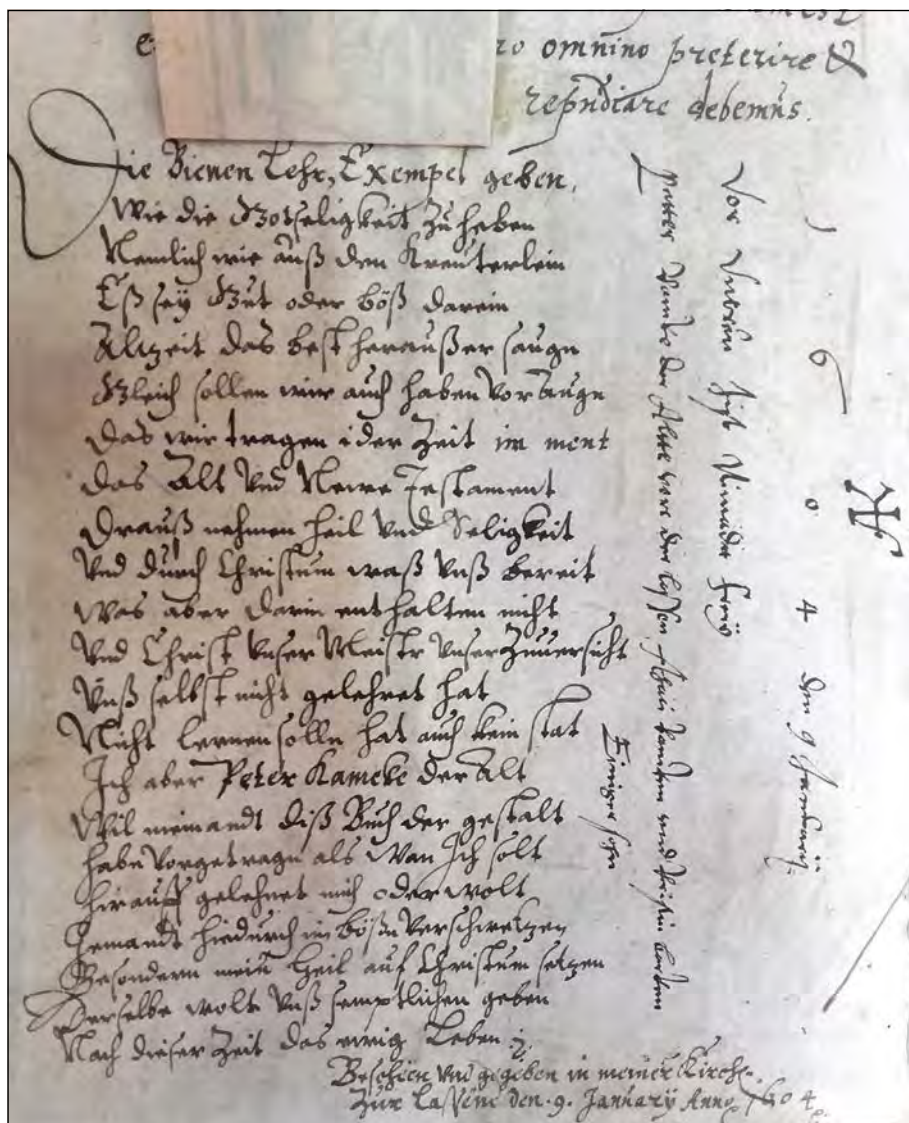 ro omnino preterire &
repudiare debemus.
Die Bienen Lehr, Exempel geben,
Wie die Gotseligkeit zu haben
Nemlich wie auß den Kreuterlein
Eß sey Gut oder böß darein
Alzeit das best heraußer saugn
Gleich sollen wir auch haben vor augn
Das wir tragen ider Zeit im ment
Das Alt vnd Newe Testament
Drauß nehmen heil vnd Seligkeit
Vnd durch Christum waß vnß bereit
Was aber darin enthalten nicht
Vnd Christ vnser Meistr vnser Zuuersicht
Vnß selbst nicht gelehret hat
Nicht lernen solln hat auch kein stat
Ich aber Peter Kameke der Alt
Wil niemandt diß Buch der gestalt
habn vorgetragn als wan Ich solt
hirauff gelehnet mich oder wolt
Jemandt hiedurch im bößn verschwetzen
Besondern mein heil auf Christum setzen
Derselbe wolt vnß semptlichen geben
Nach dieser Zeit das ewig Leben
Beschen vnd gegeben in meiner Kirche
Zur Lassene den .9. January Anno 1604
1604 den 9 January
Vor
Petter der Alte vor der
Einiger sohn